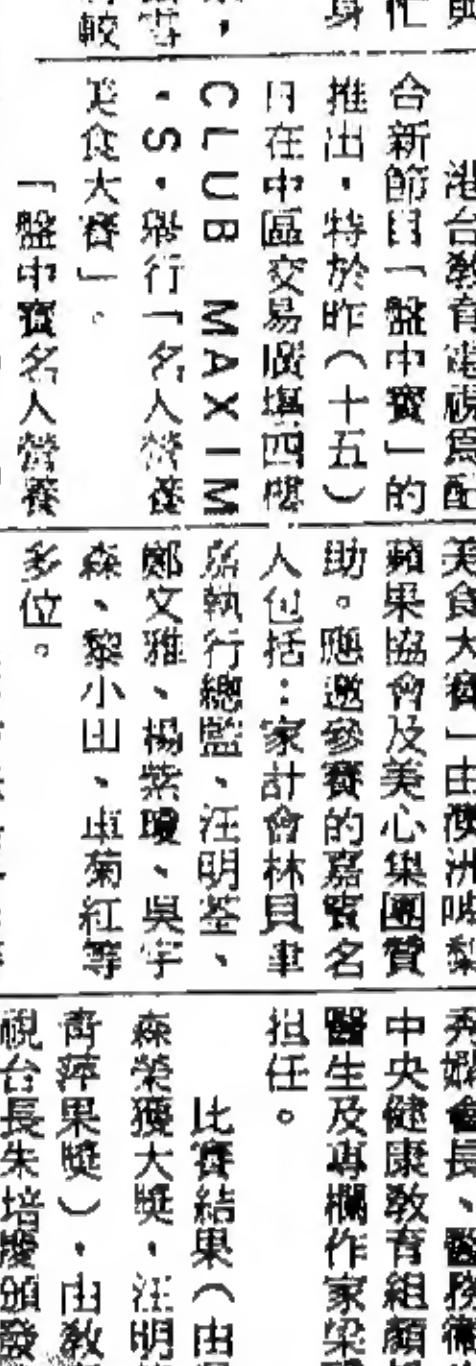 港台教育電視為配
合新節目「盤中寶」的
推出，特於昨（十五）
日在中區交易廣場四樓
CLUB MAXIM
'S，舉行「名人營養
美食大賽」。
「盤中寶名人營養
美食大賽」由澳洲啤梨
蘋果協會及美心集團贊
助。應邀參賽的嘉賓名
人包括：家計會林貝聿
嘉執行總監、汪明荃、
鄭文雅、楊紫瓊、吳宇
森、黎小田、車菊紅等
多位。
秀嫺會長、醫務衞
中央健康教育組顏
醫生及專欄作家梁
担任。
比賽結果（由
森榮獲大獎，汪明
奇萍果獎），由教
視台長朱培慶頒發